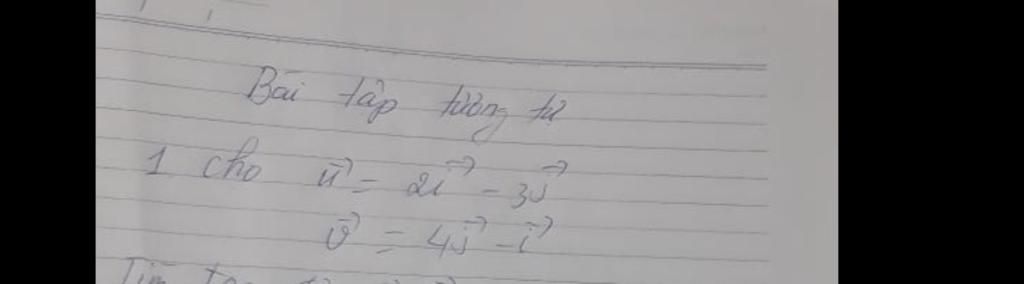 Bài tập tương tự
1 cho u⃗ = 2i⃗ - 3j⃗
v⃗ = 4j⃗ - i⃗
Tìm